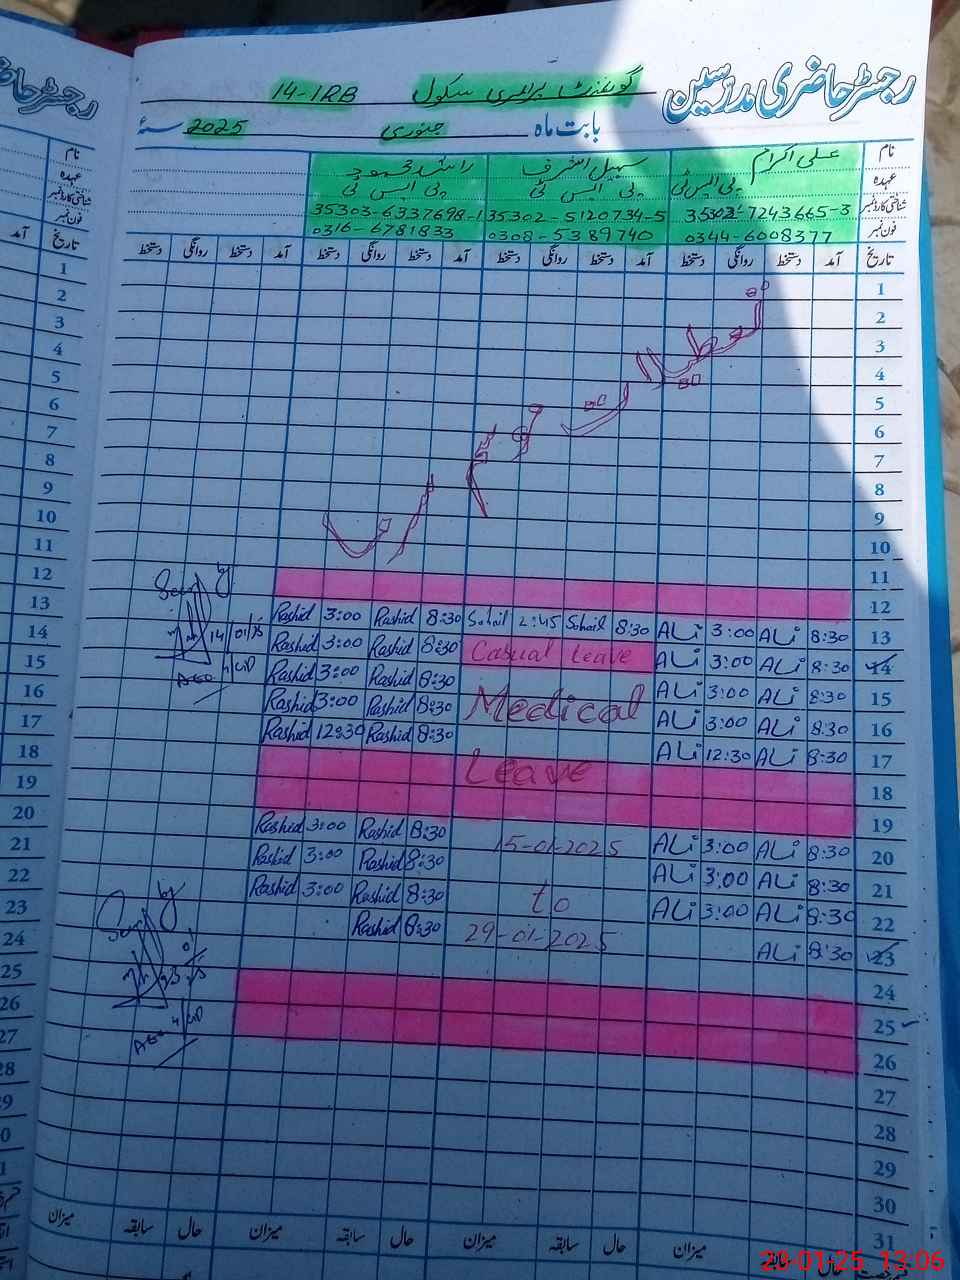 رجسٹر حاضری مدرسین
گورنمنٹ پرائمری سکول 14-1RB
بابت ماہ جنوری 2025 سنہ
نام علی اکرام سہیل اشرف راشد محمود
عہدہ پی ایس ٹی پی ایس ٹی پی ایس ٹی
شناختی کارڈ نمبر 35302-7243665-3 35302-5120734-5 35303-6337698-1
فون نمبر 0344-6008377 0308-5389740 0316-6781833
تاریخ آمد دستخط روانگی دستخط آمد دستخط روانگی دستخط آمد دستخط روانگی دستخط آمد دستخط روانگی دستخط
1
2
3
4
5
6
7
8
9
10
11
12
13 8:30 ALi 3:00 ALi 8:30 Sohail 2:45 Sohail 8:30 Rashid 3:00 Rashid
14 8:30 ALi 3:00 ALi Casual Leave 8:30 Rashid 3:00 Rashid
15 8:30 ALi 3:00 ALi 8:30 Rashid 3:00 Rashid
16 8:30 ALi 3:00 ALi Medical 8:30 Rashid 3:00 Rashid
17 8:30 ALi 12:30 ALi 8:30 Rashid 12:30 Rashid
18 Leave
19
20 8:30 ALi 3:00 ALi 15-01-2025 8:30 Rashid 3:00 Rashid
21 8:30 ALi 3:00 ALi 8:30 Rashid 3:00 Rashid
22 8:30 ALi 3:00 ALi to 8:30 Rashid 3:00 Rashid
23 8:30 ALi 29-01-2025 8:30 Rashid
24
25
26
27
28
29
30
31
میزان حال سابقہ میزان حال سابقہ میزان حال سابقہ میزان
23-01-25 13:06